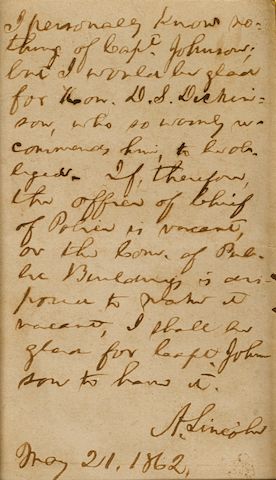 I personally know no-
thing of Capt. Johnson;
but I would be glad
for Hon. D. S. Dickin-
son, who so warmly re-
commends him, to be ob-
liged. If, therefore,
the office of Chief
of Police is vacant,
or the Com. of Pub-
lic Buildings is dis-
posed to make it
vacant, I shall be
glad for Capt John-
son to have it.
A. Lincoln
May 21, 1862,